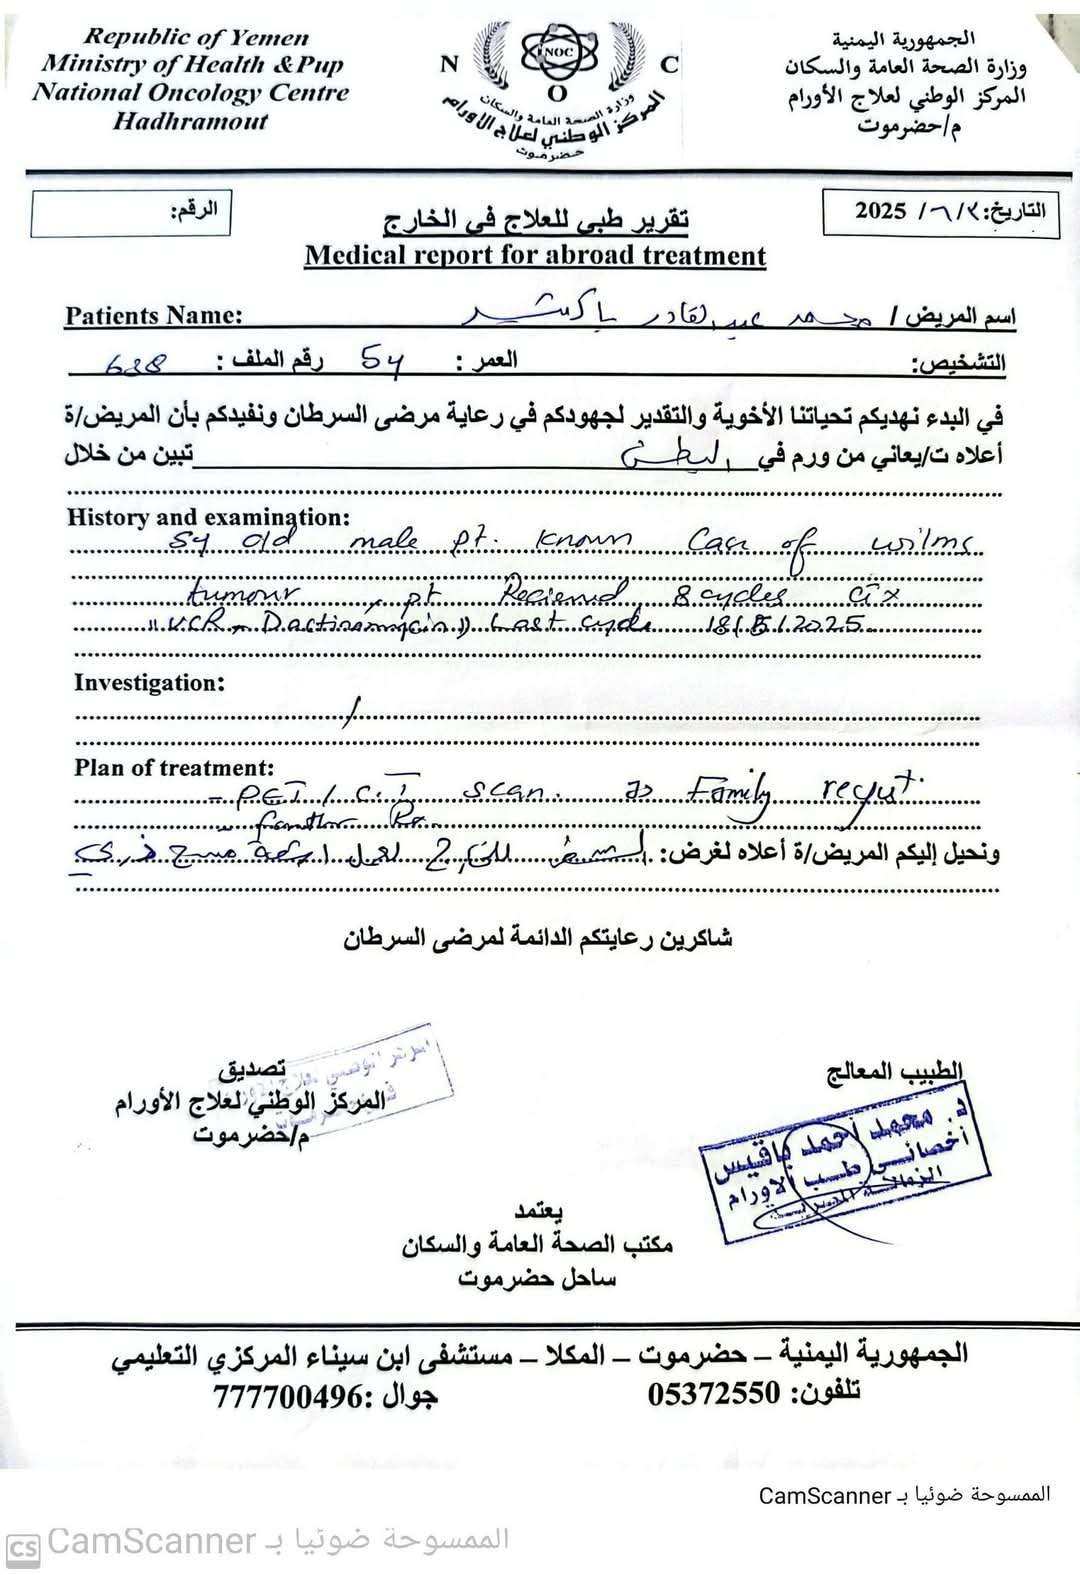 Republic of Yemen
Ministry of Health &Pup
National Oncology Centre
Hadhramout
N O C
NOC
وزارة الصحة العامة والسكان
المركز الوطني لعلاج الأورام
حضرموت
الجمهورية اليمنية
وزارة الصحة العامة والسكان
المركز الوطني لعلاج الأورام
م/حضرموت
الرقم:
التاريخ: ٢/٦/ 2025
تقرير طبي للعلاج في الخارج
Medical report for abroad treatment
Patients Name: اسم المريض / محمد عبدالقادر باكشيد
التشخيص: العمر : 5y رقم الملف : 688
في البدء نهديكم تحياتنا الأخوية والتقدير لجهودكم في رعاية مرضى السرطان ونفيدكم بأن المريض/ة
أعلاه ت/يعاني من ورم في البطن تبين من خلال
History and examination:
5y old male pt. known case of wilms
tumour , pt Recieved 8 cycles CTx
"VCR - Dactinomycin" Last cycle 18/5/2025
Investigation:
/
Plan of treatment:
- PET / C.T scan. as Family requst.
- Rx.
ونحيل إليكم المريض/ة أعلاه لغرض: السفر للخارج لعمل مسح ذري
شاكرين رعايتكم الدائمة لمرضى السرطان
تصديق
المركز الوطني لعلاج الأورام
م/حضرموت
الطبيب المعالج
د. محمد أحمد باقيس
أخصائي طب الاورام
يعتمد
مكتب الصحة العامة والسكان
ساحل حضرموت
الجمهورية اليمنية – حضرموت – المكلا – مستشفى ابن سيناء المركزي التعليمي
تلفون: 05372550 جوال :777700496
الممسوحة ضوئيا بـ CamScanner
CS الممسوحة ضوئيا بـ CamScanner